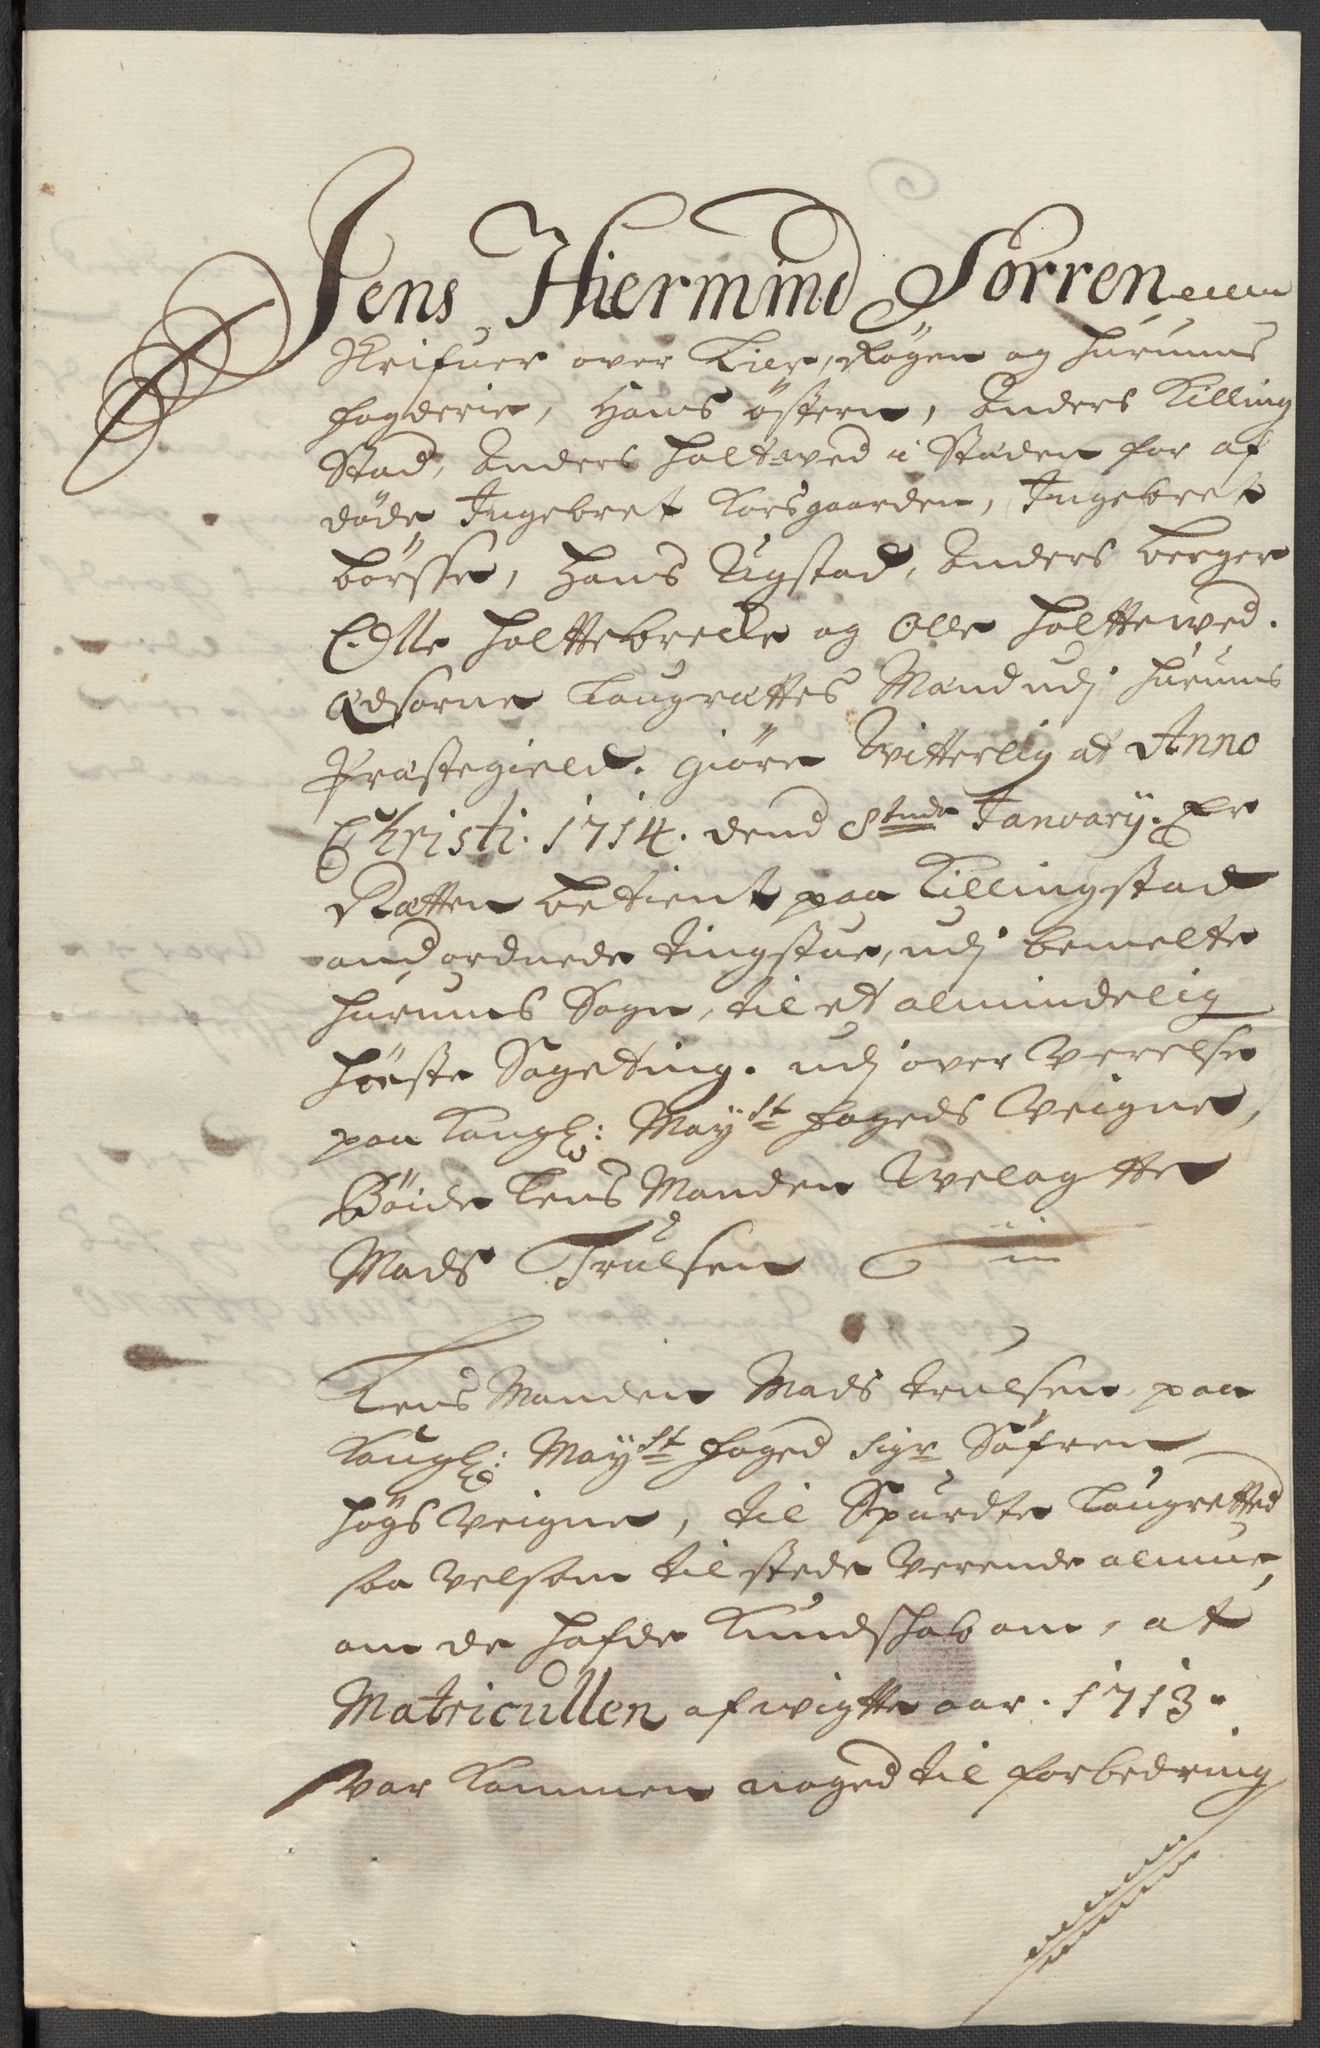 Jens Hiermind Sorren
skrifuer over Lier, Røgen og Hurums
fogderie, Hans østern, Anders Killing
stad, Anders Holtewed i Steden for af
døde Ingebret Korsgaarden, Ingebret
børsse, Hans Rygstad, Anders berger
Olle Holttebrecke og Olle Holttewed.
Edsorne Laugrættes Mænd udj Hurums
Præstegield. giöre Witterlig at Anno
Christi. 1714. dend 8tende January. Er
Rætten betient paa Killingstad
and ordnede tingstue, udj bemelte
Hurums Sogn, til et almindelig
Høste Sageting. udj over Værelse
paa Kongl: Mayst fogeds Veigne,
Böide Lens Manden Welagtte
Mads Trulsen
Lens Manden Mads Trulsen, paa
Kongl: Mayst foged Sigr Söfren
Høgs Veigne, til Spurdte Laugretted
saa velsom tilstede Verende almue,
om de hafde Kundskab om, at
Matricullen afwigtte aar. 1713.
var kommen noged til forbedring